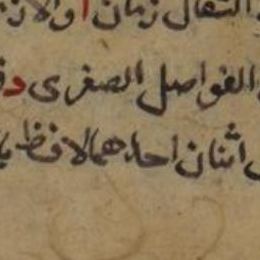 انتقال زمان ا والاز
الفواصل الصغرى د
اثنان احدهما لا فظ